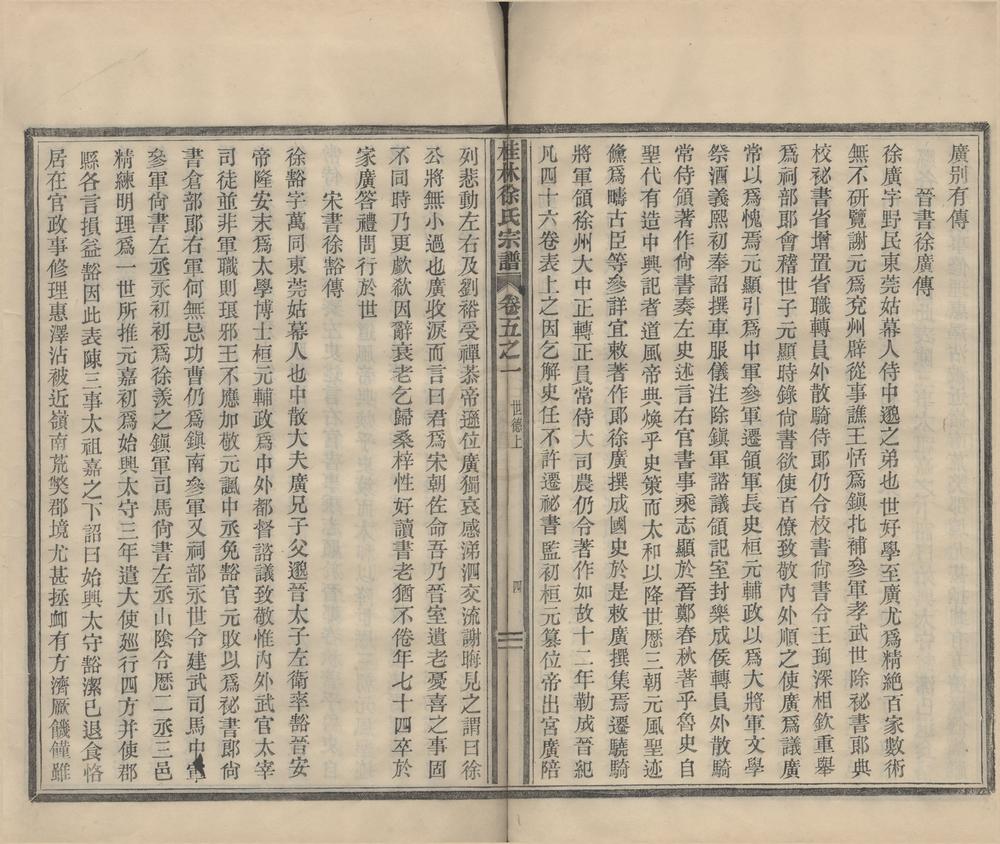 廣别有傳
晉書徐廣傳
徐廣字野民東莞姑幕人侍中邈之弟也世好學至廣尤爲精絶百家數術
無不研覽謝元爲兖州辟從事譙王恬爲鎭北補參軍孝武世除祕書郞典
校祕書省增置省職轉員外散騎侍郞仍令校書尙書令王珣深相欽重舉
爲祠部郞會稽世子元顯時錄尙書欲使百僚致敬內外順之使廣爲議廣
常以爲愧焉元顯引爲中軍參軍遷領軍長史桓元輔政以爲大將軍文學
祭酒義熙初奉詔撰車服儀注除鎭軍諮議領記室封樂成侯轉員外散騎
常侍領著作尙書奏左史述言右官書事乘志顯於晉鄭春秋著乎魯史自
聖代有造中興記者道風帝典煥乎史策而太和以降世歷三朝元風聖迹
儵爲疇古臣等參詳宜敕著作郞徐廣撰成國史於是敕廣撰集焉遷驍騎
將軍領徐州大中正轉正員常侍大司農仍令著作如故十二年勒成晉紀
凡四十六卷表上之因乞解史任不許遷祕書監初桓元纂位帝出宮廣陪
桂林徐氏宗譜 卷五之一 世德上 四
列悲動左右及劉裕受禪恭帝遜位廣獨哀感涕泗交流謝晦見之謂曰徐
公將無小過也廣收淚而言曰君爲宋朝佐命吾乃晉室遺老憂喜之事固
不同時乃更歔欷因辭衰老乞歸桑梓性好讀書老猶不倦年七十四卒於
家廣答禮問行於世
宋書徐豁傳
徐豁字萬同東莞姑幕人也中散大夫廣兄子父邈晉太子左衛率豁晉安
帝隆安末爲太學博士桓元輔政爲中外都督諮議致敬惟內外武官太宰
司徒並非軍職則琅邪王不應加敬元諷中丞免豁官元敗以爲祕書郞尙
書倉部郞右軍何無忌功曹仍爲鎭南參軍又祠部永世令建武司馬中軍
參軍尙書左丞永初初爲徐羨之鎭軍司馬尙書左丞山陰令歷二丞三邑
精練明理爲一世所推元嘉初爲始興太守三年遣大使廵行四方并使郡
縣各言損益豁因此表陳三事太祖嘉之下詔曰始興太守豁潔已退食恪
居在官政事修理惠澤沾被近嶺南荒獘郡境尤甚拯衈有方濟厥饑饉雖